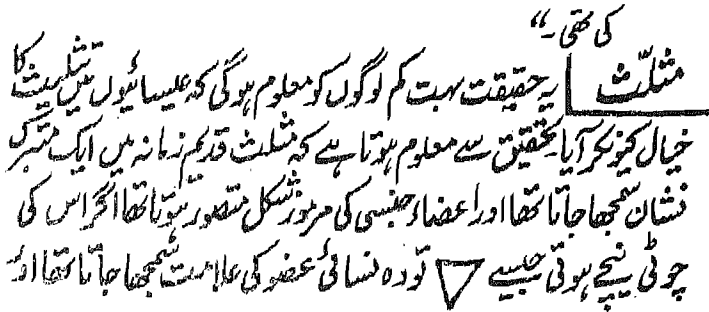 کی تھی۔"
مثلّث یہ حقیقت بہت کم لوگوں کو معلوم ہوگی کہ عیسائیوں میں تثلیث کا
خیال کیونکر آیا۔ تحقیق سے معلوم ہوتا ہے کہ مثلث قدیم زمانہ میں ایک متبرک
نشان سمجھا جاتا تھا اور اعضاء جنسی کی مرموز شکل متصور ہوتا تھا اگر اس کی
چوٹی نیچے ہوتی جیسے ▽ تو وہ نسائی عضو کی علامت سمجھا جاتا تھا اور